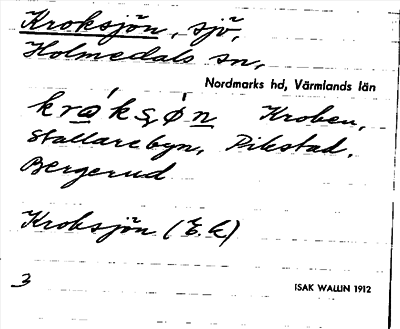 Kroksjön, sjö,
Holmedals sn,
Nordmarks hd, Värmlands län
Kroben,
Stallarebyn, Pikstad,
Bergerud
Kroksjön (E.k)
3
ISAK WALLIN 1912